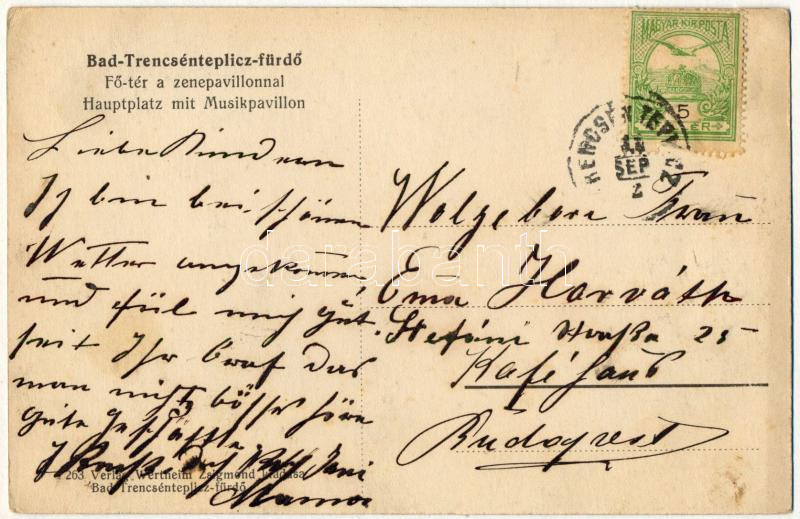 Bad-Trencsénteplicz-fürdő
Fő-tér a zenepavillonnal
Hauptplatz mit Musikpavillon
MAGYAR KIR. POSTA
5
TRENCSÉN TEPLICZ
SEP
2
Liebe Kinder
Ich bin bei schönen
Wetter angekomen
und fül mich gut.
seit Ihr braf das
man nichts böses höre
gute
Mama
Wolgebore Frau
Ema Horváth
Stefáni straße 25
Kaféhaus
Budapest
263 Verlag Wertheim Zsigmond kiadása
Bad-Trencsénteplicz-fürdő
darabanth